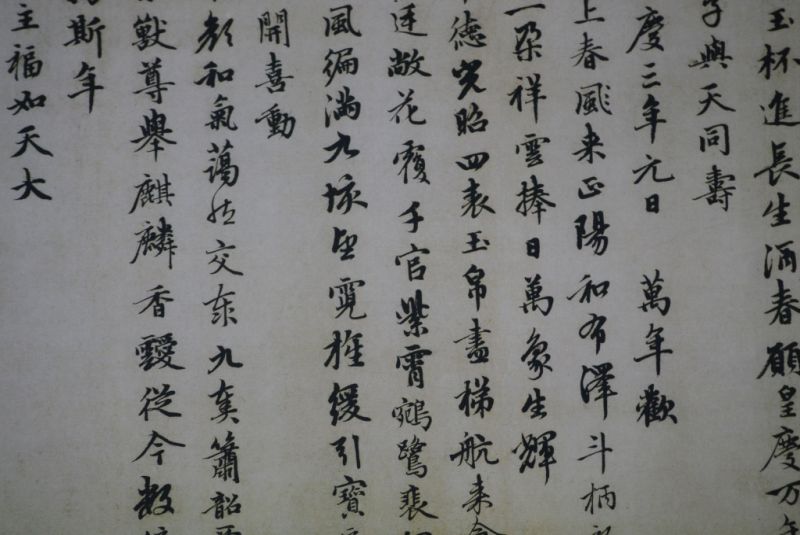 玉杯進長生酒春願皇慶万年
子與天同壽
慶三年元日 萬年歡
上春風来正陽和布澤斗柄
一朶祥雲捧日萬象生輝
德光昭四表玉帛盡梯航来
廷敞花覆千官紫霄鵷鷺裴
風徧满九垓望霓旌緩引寶
開喜動
彩和氣藹然交泰九奏簫韶
獸尊舉麒麟香靉從今數
斯年
主福如天大